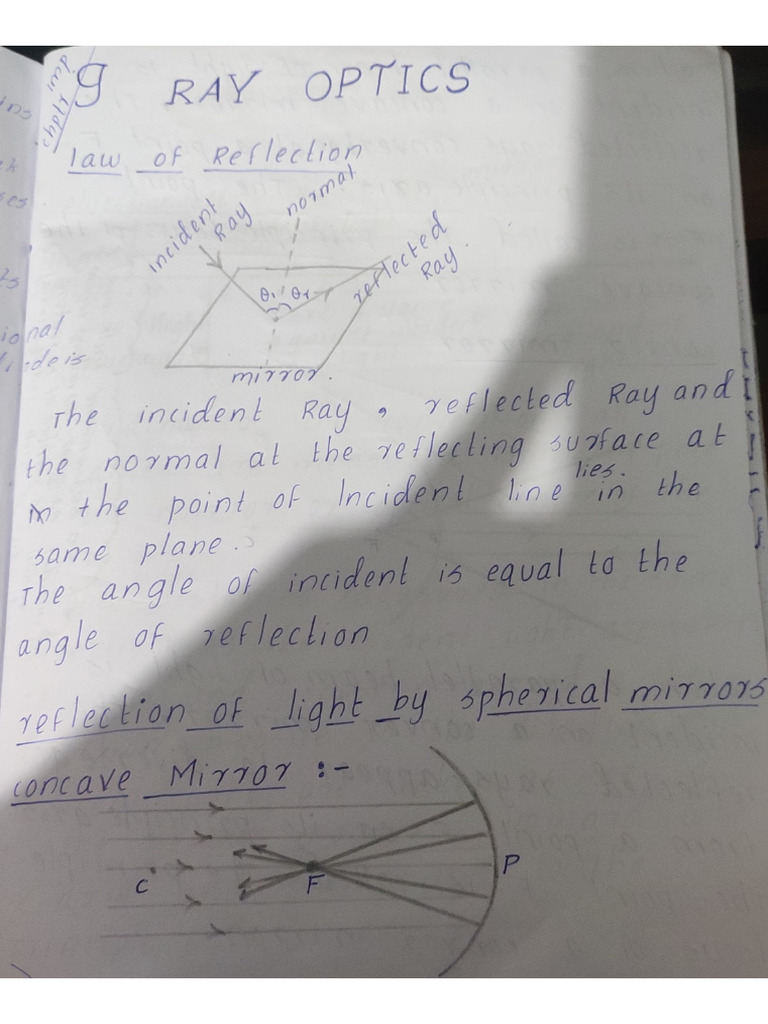 imp
chptr
9 RAY OPTICS
law of Reflection
normal
incident
Ray
reflected
Ray.
θi θr
mirror.
The incident Ray, reflected Ray and
the normal at the reflecting surface at
lies.
the point of Incident line in the
same plane.
The angle of incident is equal to the
angle of reflection
reflection of light by spherical mirrors
concave Mirror :-
C F P
ins
es
ts
ional